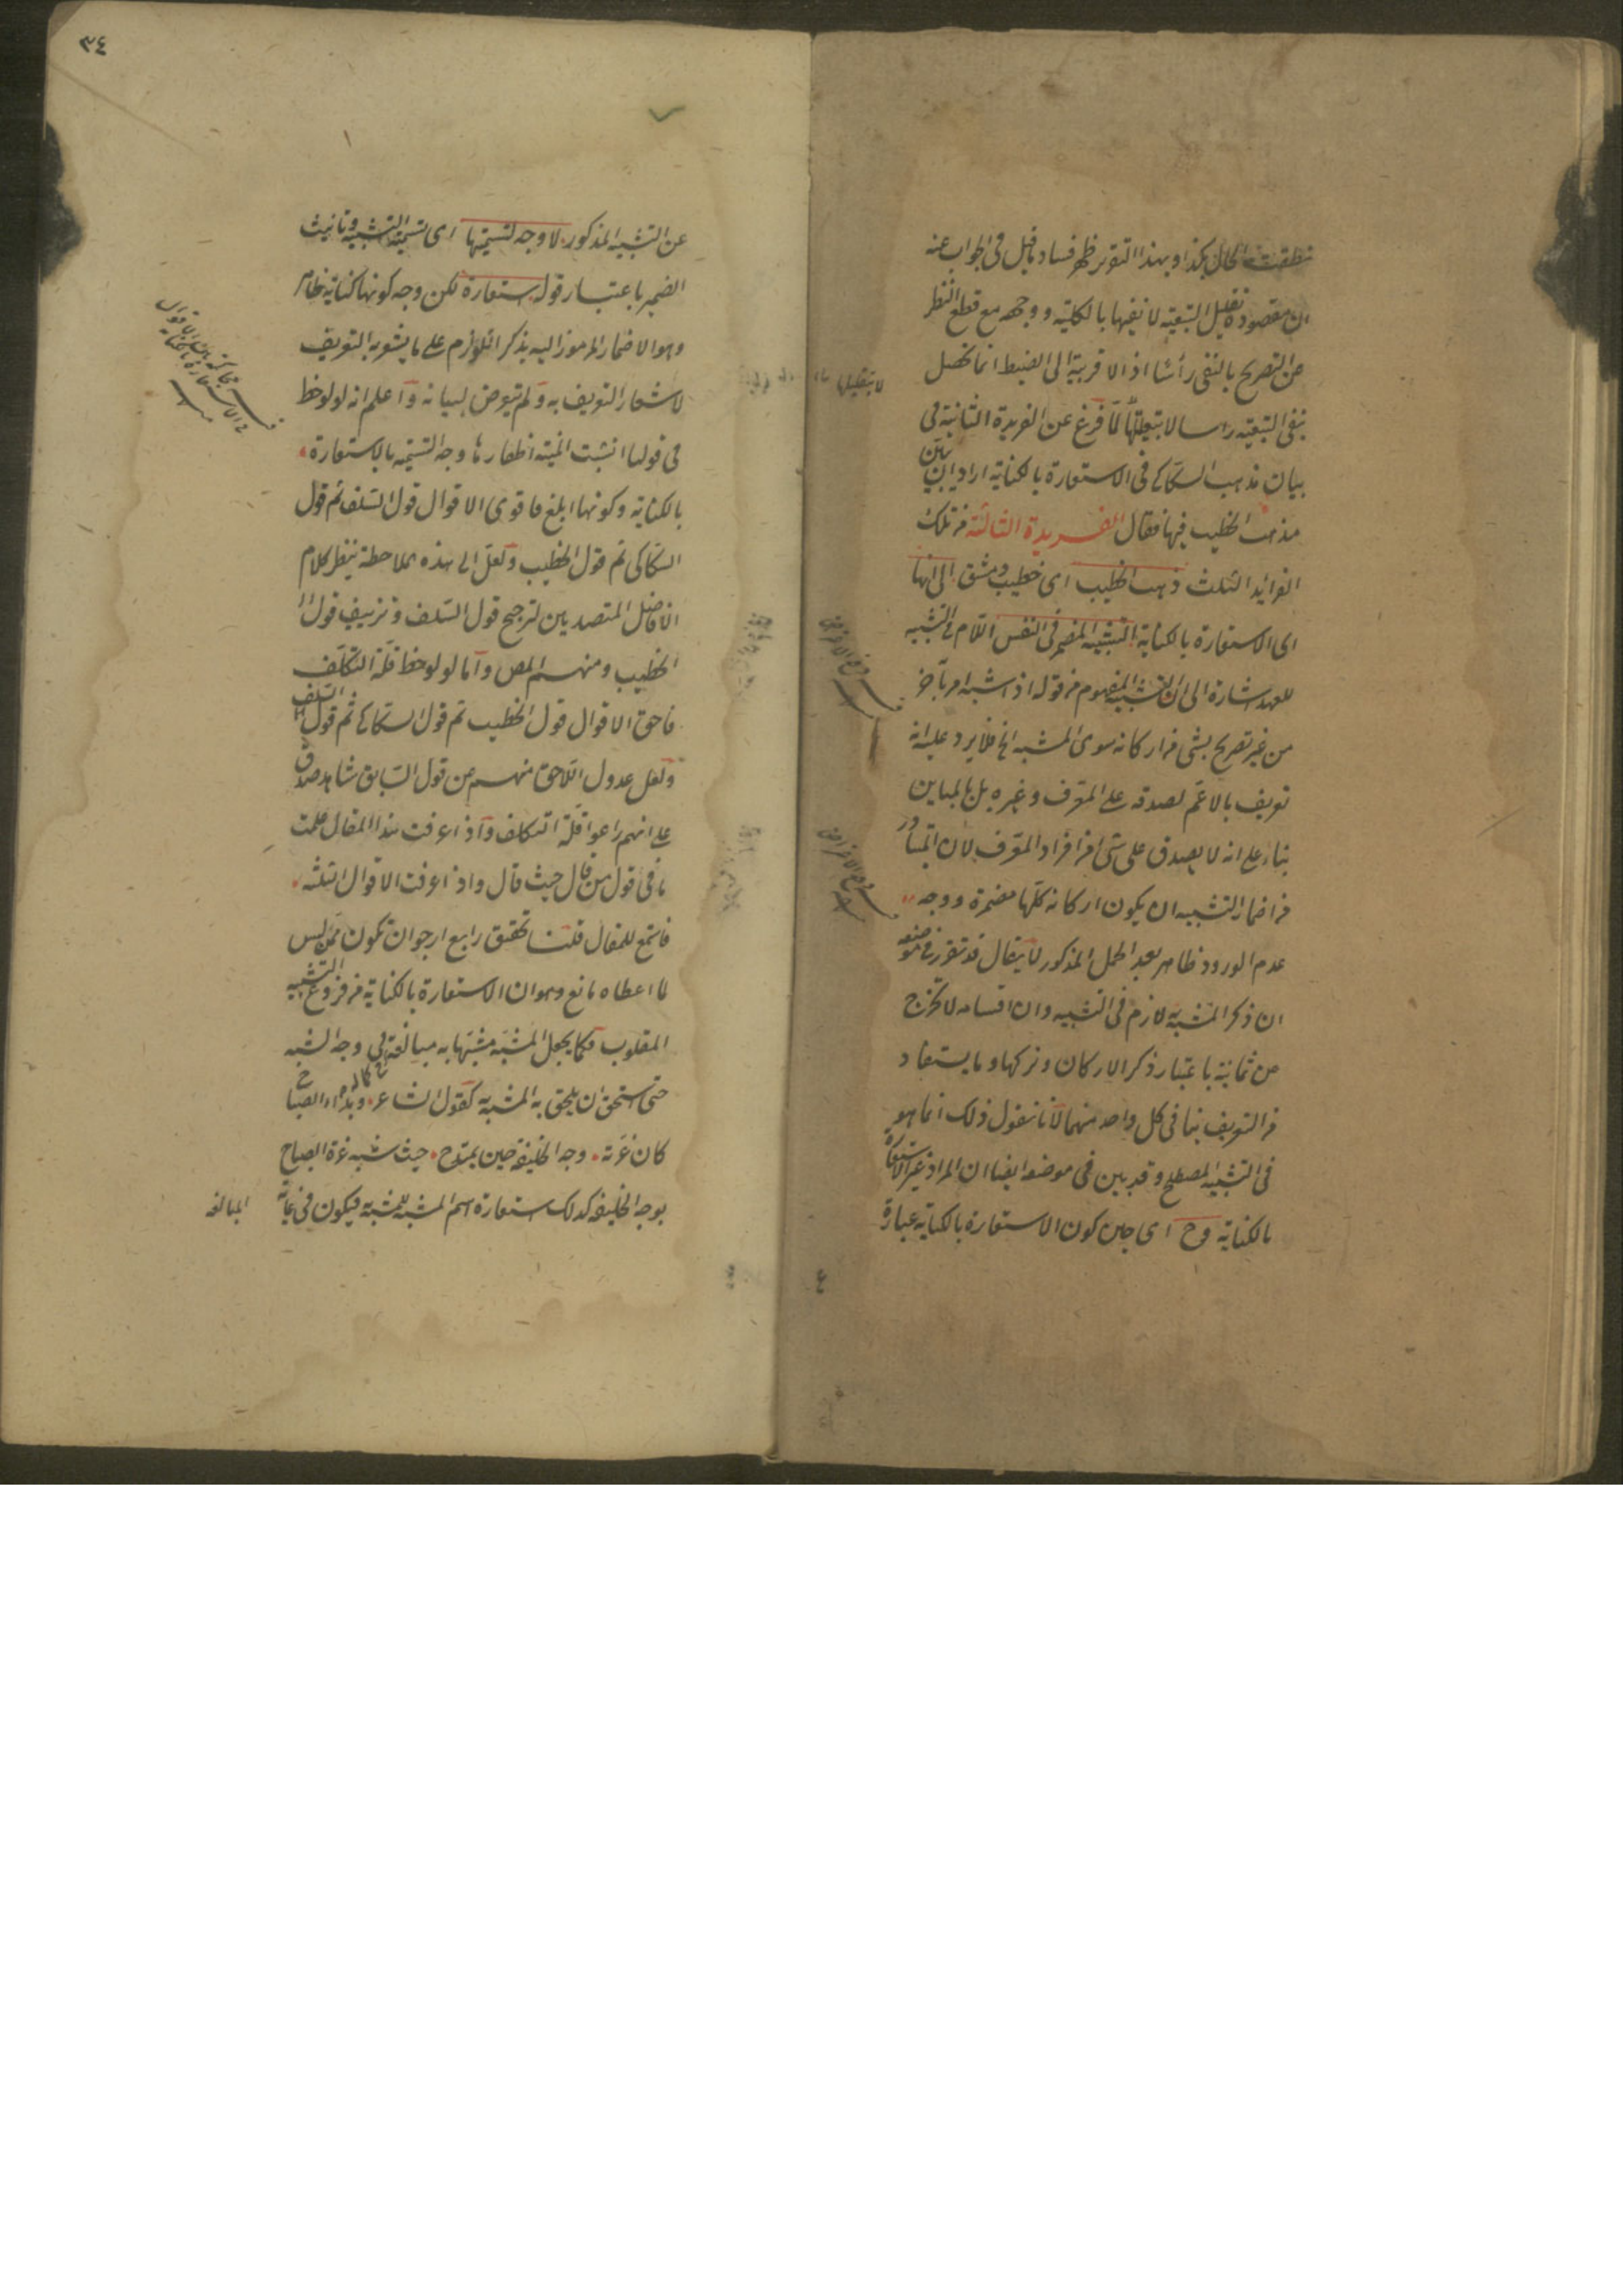 نطقت الحال بكذا وبهذا التقرير ظهر فساد ما قيل فى الجواب عنه
ان مقصوده تقليل التبعية لا نفيها بالكلية ووجهه مع قطع النظر
عن التصريح بالنفى رأسا اذ الاقربية الى الضبط انما تحصل
بنفى التبعية راسا لا بتقليلها لما فرغ عن الفريدة الثانية فى
بيان مذهب السكاكى فى الاستعارة بالكناية اراد ان يبين
مذهب الخطيب فيها فقال الفريدة الثالثة من تلك
الفرايد الثلث ذهب الخطيب اى خطيب دمشق الى انها
اى الاستعارة بالكناية التشبيه المضمر فى النفس اللام فى التشبيه
للعهد اشارة الى ان التشبيه المفهوم من قوله اذا شبه امر بآخر
من غير تصريح بشئ من اركانه سوى المشبه الخ فلا يرد عليه انه
تعريف بالاعم لصدقه على المعرف وغيره بل بالمباين
بناء على انه لا يصدق على شئ من افراد المعرف لان المتبادر
من اضمار التشبيه ان يكون اركانه كلها مضمرة ووجه
عدم الورود ظاهر بعد الحمل المذكور لا يقال قد تقرر فى موضعه
ان ذكر المشبه به لازم فى التشبيه وان اقسامه لا تخرج
عن ثمانية باعتبار ذكر الاركان وتركها وما يستفاد
من التعريف ينافى كل واحد منهما لانا نقول ذلك انما هو
فى التشبيه المصطلح وقد بين فى موضعه ايضا ان المراد غير الاستعارة
بالكناية وح اى حين كون الاستعارة بالكناية عبارة
٣٤
عن التشبيه المذكور لا وجه لتسميتها اى تسمية التشبيه وتانيث
الضمير باعتبار قوله استعارة لكن وجه كونها كناية ظاهر
وهو الاضمار المرموز اليه بذكر اللوازم على ما يشعر به التعريف
لاشعار التعريف به ولم يتعرض لبيانه واعلم انه لو لوحظ
فى قولنا انشبت المنية اظفارها وجه التسمية بالاستعارة
بالكناية وكونها ابلغ فاقوى الاقوال قول السلف ثم قول
السكاكى ثم قول الخطيب ولعل الى هذه الملاحظة ينظر كلام
الافاضل المتصديين لترجيح قول السلف وتزييف قول
الخطيب ومنهم المص واما لو لوحظ قلة التكلف
فاحق الاقوال قول الخطيب ثم قول السكاكى ثم قول السلف
ولعل عدول اللاحق منهم عن قول السابق شاهد صدق
على انهم راعوا قلة التكلف واذا عرفت هذا المقال علمت
ما فى قول من قال حيث قال واذا عرفت الاقوال الثلثة
فاستمع للمقال قلنا تحقيق رابع ارجو ان تكون ممن ليس
لما اعطاه مانع وهو ان الاستعارة بالكناية من فروع التشبيه
المقلوب فكما يجعل المشبه مشبها به مبالغة فى وجه الشبه
حتى استحق ان يلحق به المشبه به كقول الشاعر وبدا الصباح
كان غرته وجه الخليفة حين يمتدح حيث شبه غرة الصباح
بوجه الخليفة كذلك استعارة اسم المشبه للمشبه به فيكون فى غاية
المبالغة